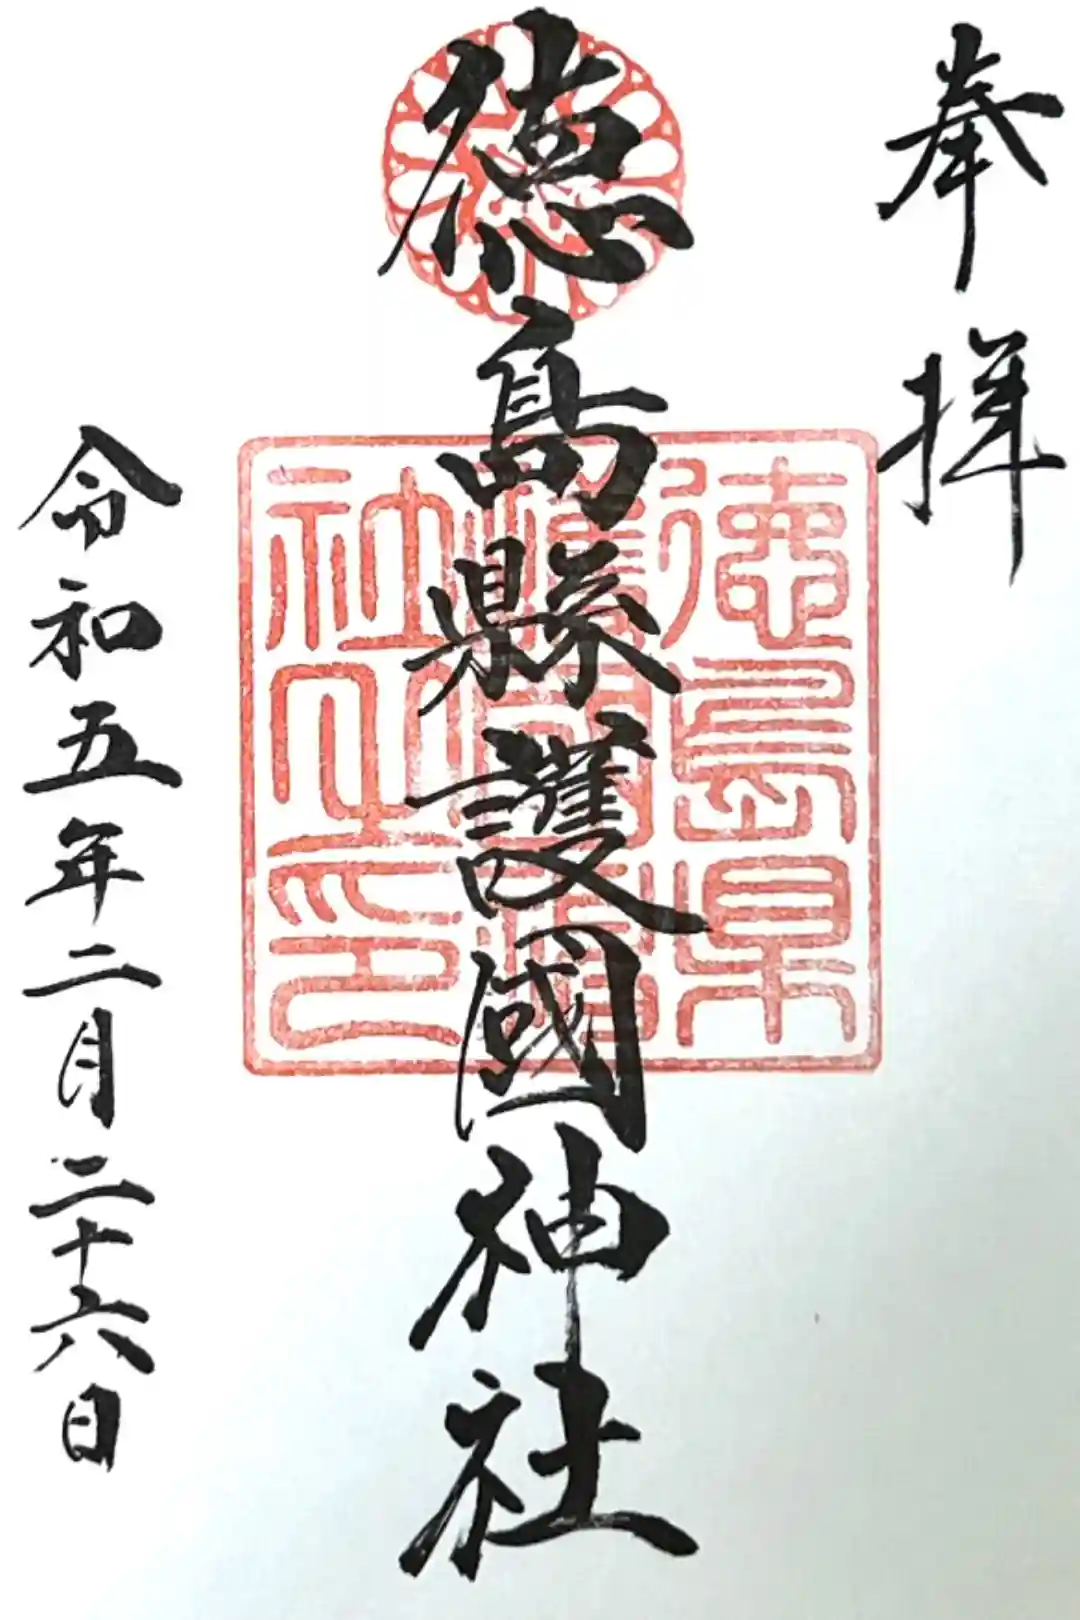 奉拝
徳島縣護國神社
令和五年二月二十六日
徳島県
護國神
社之印